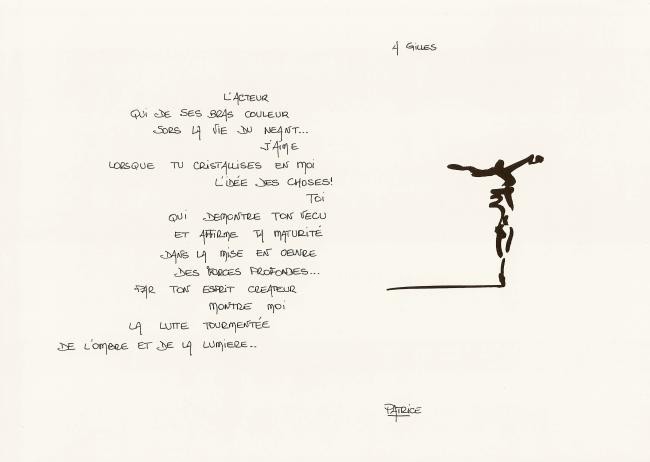 A GILLES
L'ACTEUR
QUI DE SES BRAS COULEUR
SORS LA VIE DU NEANT...
J'AIME
LORSQUE TU CRISTALLISES EN MOI
L'IDÉE DES CHOSES!
TOI
QUI DEMONTRE TON VECU
ET AFFIRME TA MATURITÉ
DANS LA MISE EN OEUVRE
DES FORCES PROFONDES...
PAR TON ESPRIT CREATEUR
MONTRE MOI
LA LUTTE TOURMENTÉE
DE L'OMBRE ET DE LA LUMIERE..
PATRICE